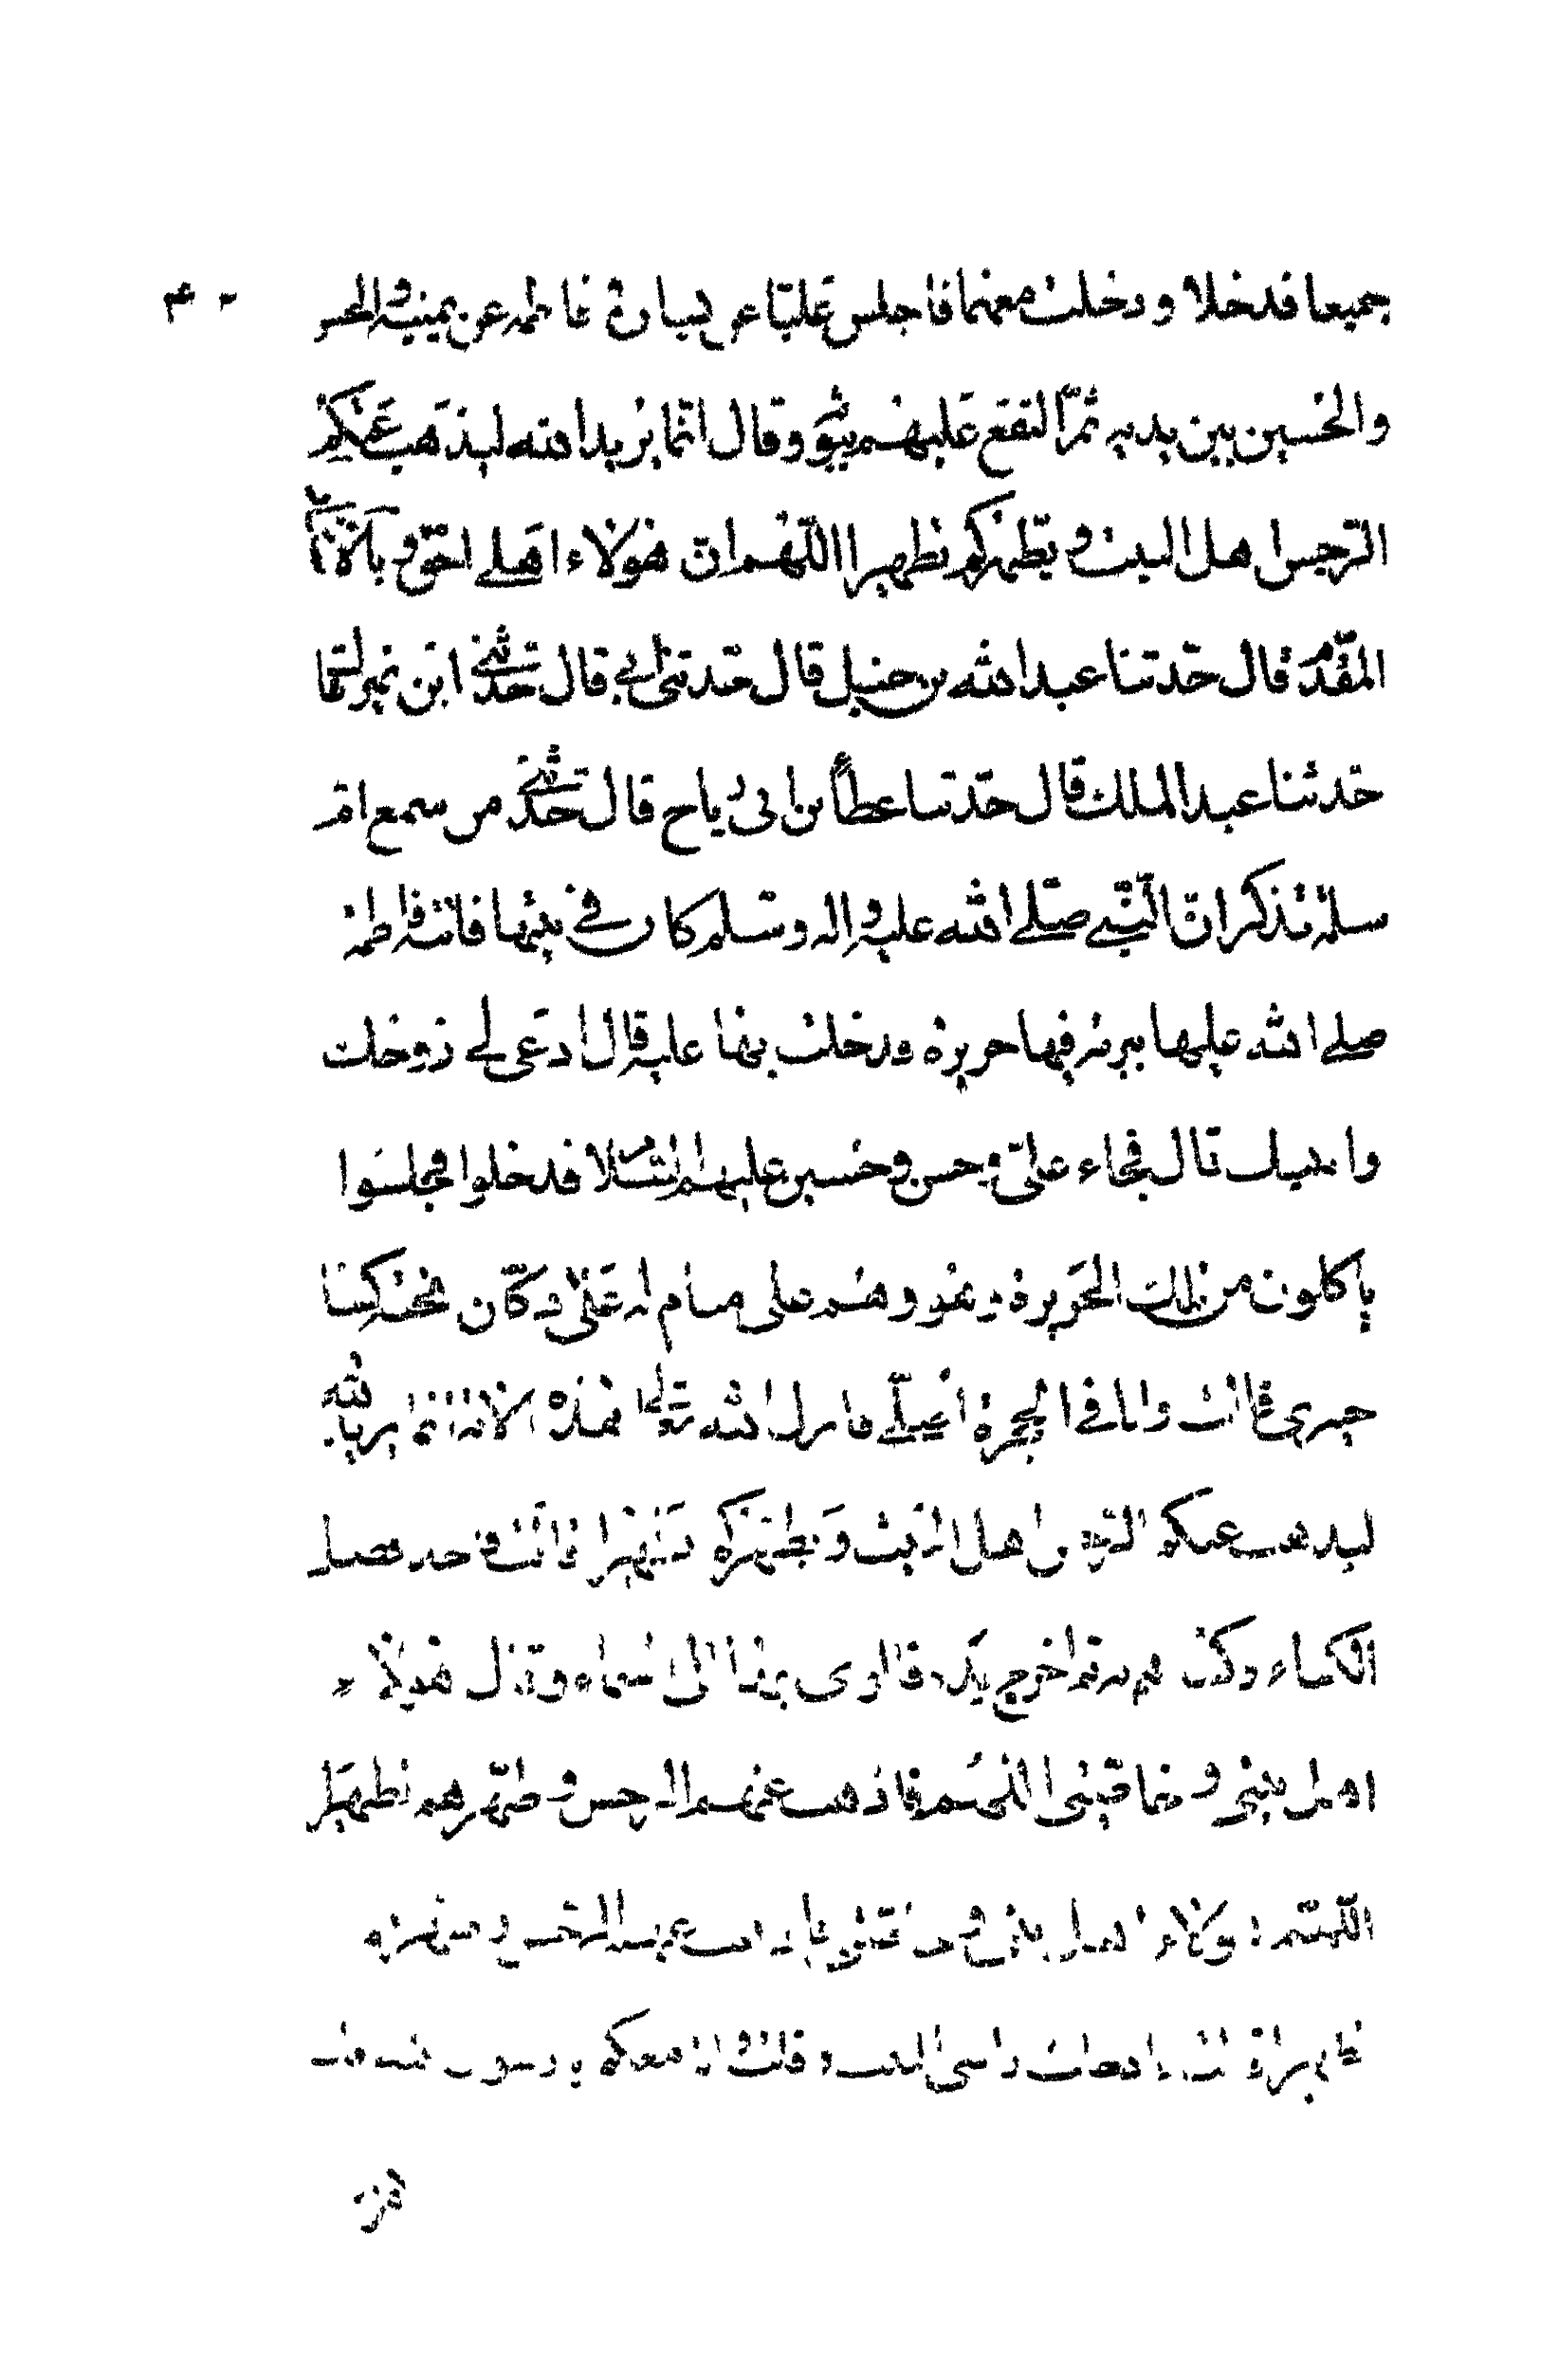 جميعا فدخلا و دخلت معهما فاجلس عليّا عن يساره و فاطمه عن يمينه و الحسن
والحسين بين يديه ثمّ التفع عليهم بثوبه و قال انّما يريد الله ليذهب عنكم
الرّجس اهل البيت و يطهّركم تطهيرا اللّهم انّ هؤلاء اهلي احقّ و بالاسناد
المقدّم قال حدّثنا عبد الله بن حنبل قال حدّثنى ابي قال حدّثني ابن نمير قال
حدثنا عبد الملك قال حدّثنا عطاء بن ابى رياح قال حدّثني من سمع امّ
سلمة تذكر انّ النّبي صلى الله عليه و اله و سلم كان في بيتها فاتته فاطمة
صلى الله عليها ببرمة فيها حريرة و دخلت بها عليه قال ادعى لي زوجك
وابنيك قال فجاء علىّ و حسن و حسين عليهم السّلام فدخلوا فجلسوا
ياكلون من تلك الحريرة و هو و هم على منام له على دكّان تحته كسا
خيبرى قالت وانا في الحجرة اصلّي فانزل الله تعالى هذه الاية انّما يريد الله
ليذهب عنكم الرّجس اهل البيت و يطهّركم تطهيرا قالت فاخذ فضل
الكساء وكساهم به ثم اخرج يده فالوى بها الى السماء و قال هؤلاء
اهل بيتى و خاصّتى اللهم فاذهب عنهم الرجس و طهّرهم تطهيرا
اللّهمّ هؤلاء اهل بيتى و خاصّتى فاذهب عنهم الرّجس و طهّرهم
تطهيرا قالت فادخلت راسى البيت و قلت انا معكم يا رسول الله قال